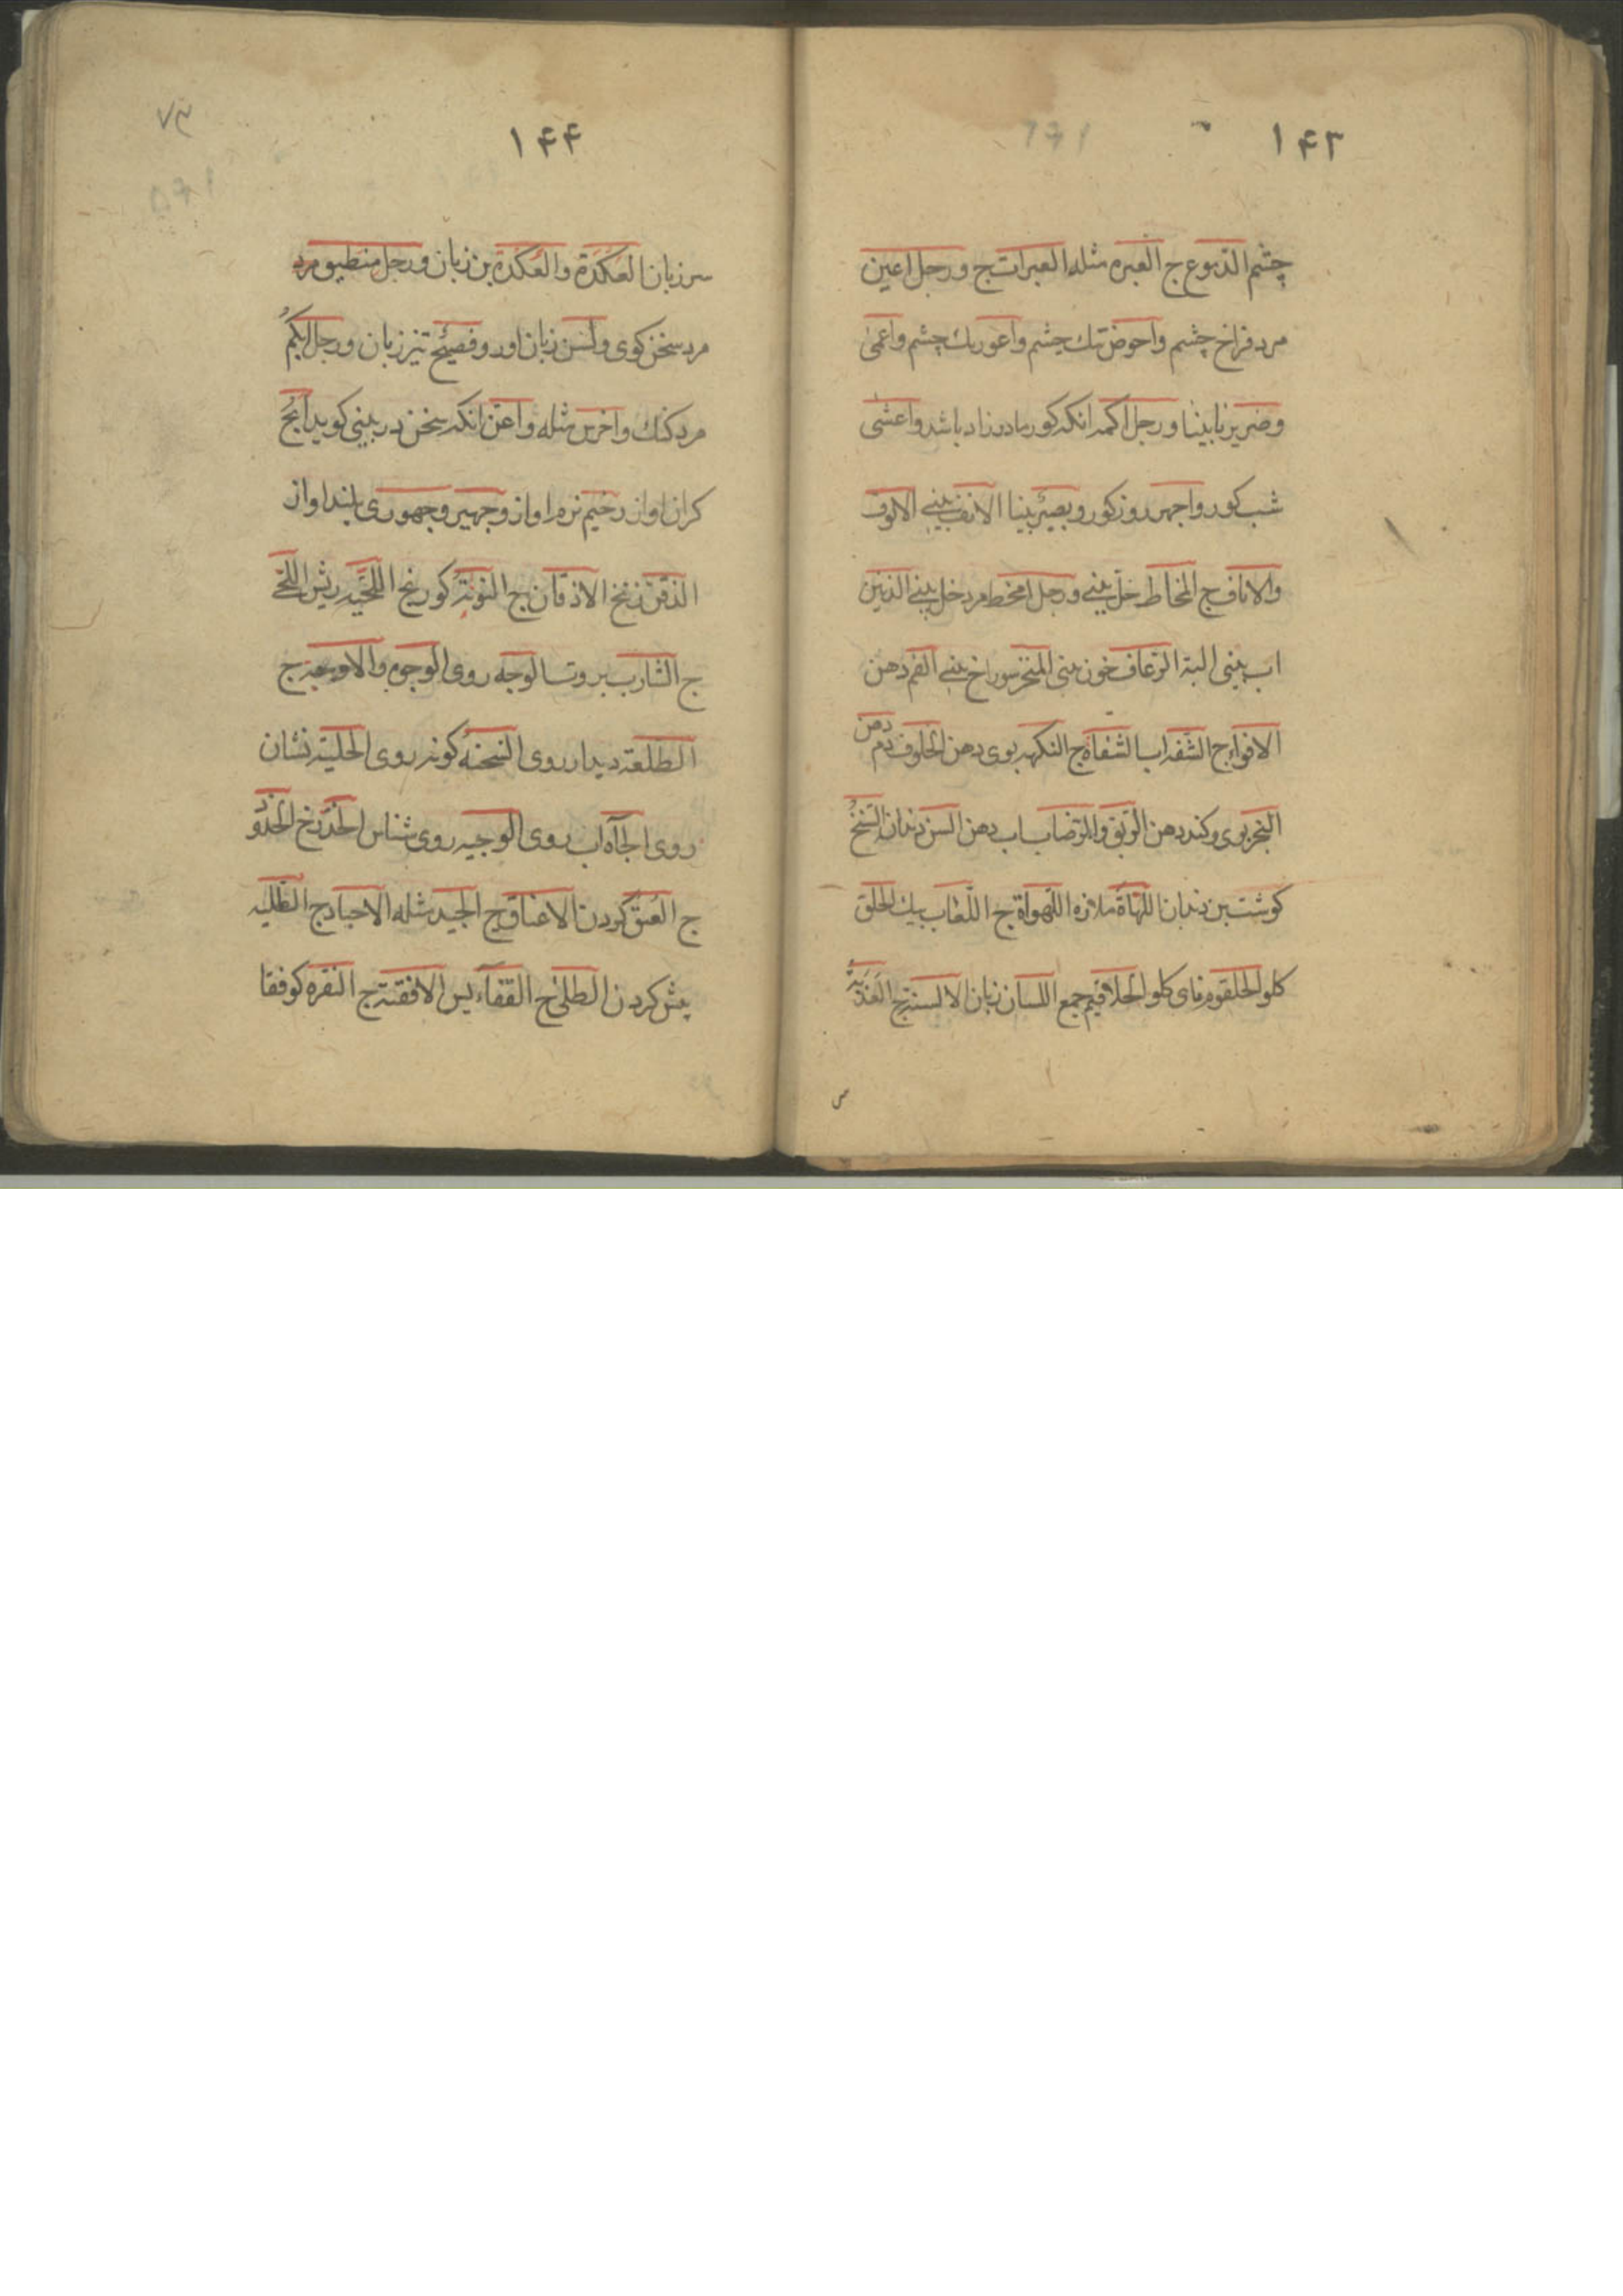 ۱۴۳
چشم الدموع ج العبره مثله العبرات ج ورجل اعین
مرد فراخ چشم واحوض تنك چشم واعور یك چشم واعمی
وضریر نابینا ورجل اكمه انكه كور مادرزاد باشد واعشی
شب كور واجهر روز كور وبصیر بینا الانف بینی الانوف
والاناف ج المخاط خل بینی ورجل امخط مرد خل بینی الذنین
اب بینی الرعاف خون بینی المنخر سوراخ بینی الفم دهن
الافواه ج الشفه لب الشفاة ج النكهه بوی دهن الخلوف دم دهن
البخر بوی وكند دهن الریق والرضاب اب دهن السن دندان السنخ
كوشت بن دندان اللهاة ملازه اللهواة ج اللعاب الحلق
كلو الحلقوم نای كلو الحلاقیم جمع اللسان زبان الالسنة ج العذبة
۱۴۴
سر زبان العكدة والعكدة بن زبان ورجل منطیق مرد
مرد سخن كوی ولسن زبان اور وفصیح تیز زبان ورجل ابكم
مرد كنك واخرس مثله واغن انكه سخن در بینی كوید ابح
كران اواز رخیم نرم اواز وجهیر وجهوری بلند اواز
الذقن زنخ الاذقان ج النونة كو زنخ اللحیه ریش اللحی
ج الشارب بروت الوجه روی الوجوه والاوجه ج
الطلعة دیدار روی السحنة كونه روی الحلیة نشان
روی الجآه اب روی الوجیه روی شناس الخد رخ الخدو
ج العنق كردن الاعناق ج الجید مثله الاجیاد ج الطلیه
پیش كردن الطلی ج القفاء پس الاقفیة ج النقره كو قفا